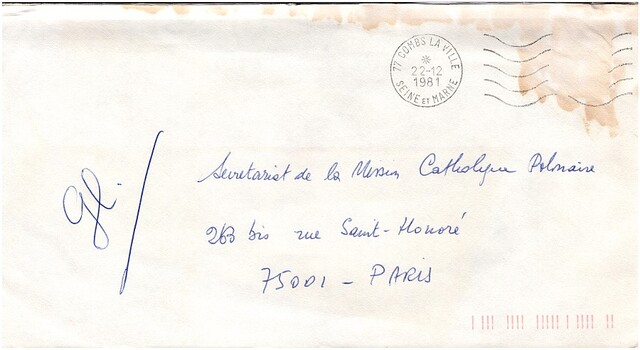 77 COMBS LA VILLE
22-12
1981
SEINE ET MARNE
Secretariat de la Mission Catholique Polonaise
263 bis rue Saint-Honoré
75001 - PARIS